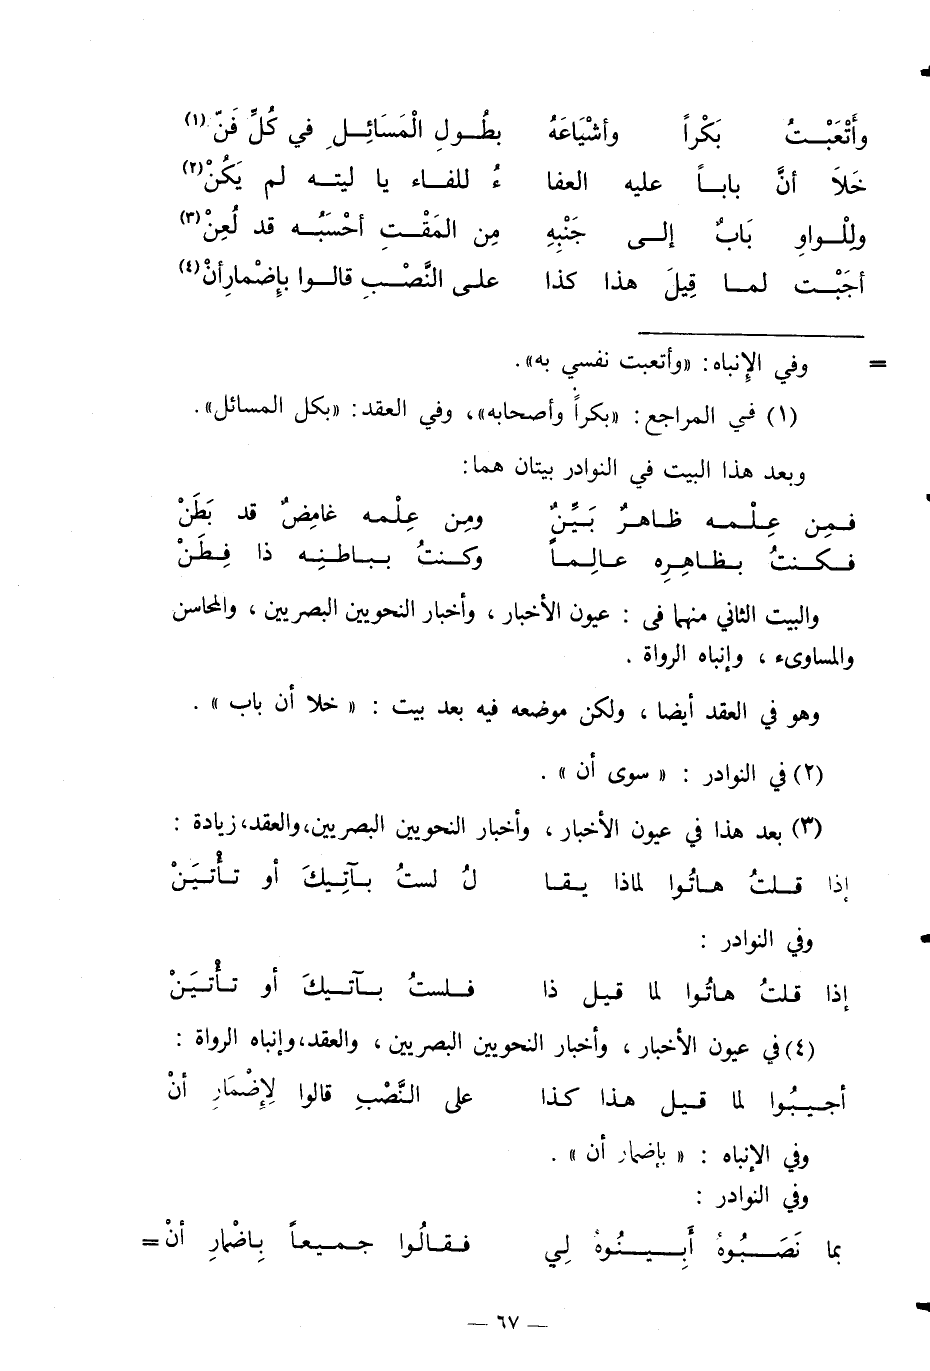 وأَتْعَبْتُ بَكْراً وأشْيَاعَهُ بطُولِ الْمَسَائِلِ في كُلِّ فَنّ (١)
خَلاَ أنَّ باباً عليه العفا ءُ للفاء يا ليته لم يَكُنْ (٢)
ولِلْواوِ بَابٌ إلى جَنْبِهِ مِن المَقْتِ أحْسَبُه قد لُعِنْ (٣)
أجَبْت لما قِيلَ هذا كذا على النَّصْبِ قالوا بإِضْمارِ أنْ (٤)
= وفي الإِنباه: «وأتعبت نفسي به».
(١) في المراجع: «بكراً وأصحابه»، وفي العقد: «بكل المسائل».
وبعد هذا البيت في النوادر بيتان هما:
فمِن عِلْمه ظاهرٌ بَيِّنٌ ومِن عِلْمه غامِضٌ قد بَطَنْ
فكنتُ بظاهِرِه عالِماً وكنتُ بباطنِه ذا فِطَنْ
والبيت الثاني منهما فى : عيون الأخبار ، وأخبار النحويين البصريين ، والمحاسن
والمساوىء ، وإنباه الرواة .
وهو في العقد أيضا ، ولكن موضعه فيه بعد بيت : « خلا أن باب » .
(٢) في النوادر : « سوى أن » .
(٣) بعد هذا في عيون الأخبار ، وأخبار النحويين البصريين، والعقد، زيادة :
إذا قلتُ هاتُوا لماذا يقا لُ لستُ بآتِيكَ أو تأْتيَنْ
وفي النوادر :
إذا قلتُ هاتُوا لما قيل ذا فلستُ بآتيكَ أو تأْتيَنْ
(٤) في عيون الأخبار ، وأخبار النحويين البصريين ، والعقد، وإنباه الرواة :
أجيبُوا لما قيل هذا كذا على النَّصْبِ قالوا لِإِضْمَارِ أنْ
وفي الإنباه : « بإضمار أن » .
وفي النوادر :
بما نَصَبُوهُ أَبِينُوهُ لِي فقالُوا جميعاً بِاضْمارِ أنْ =
— ٦٧ —